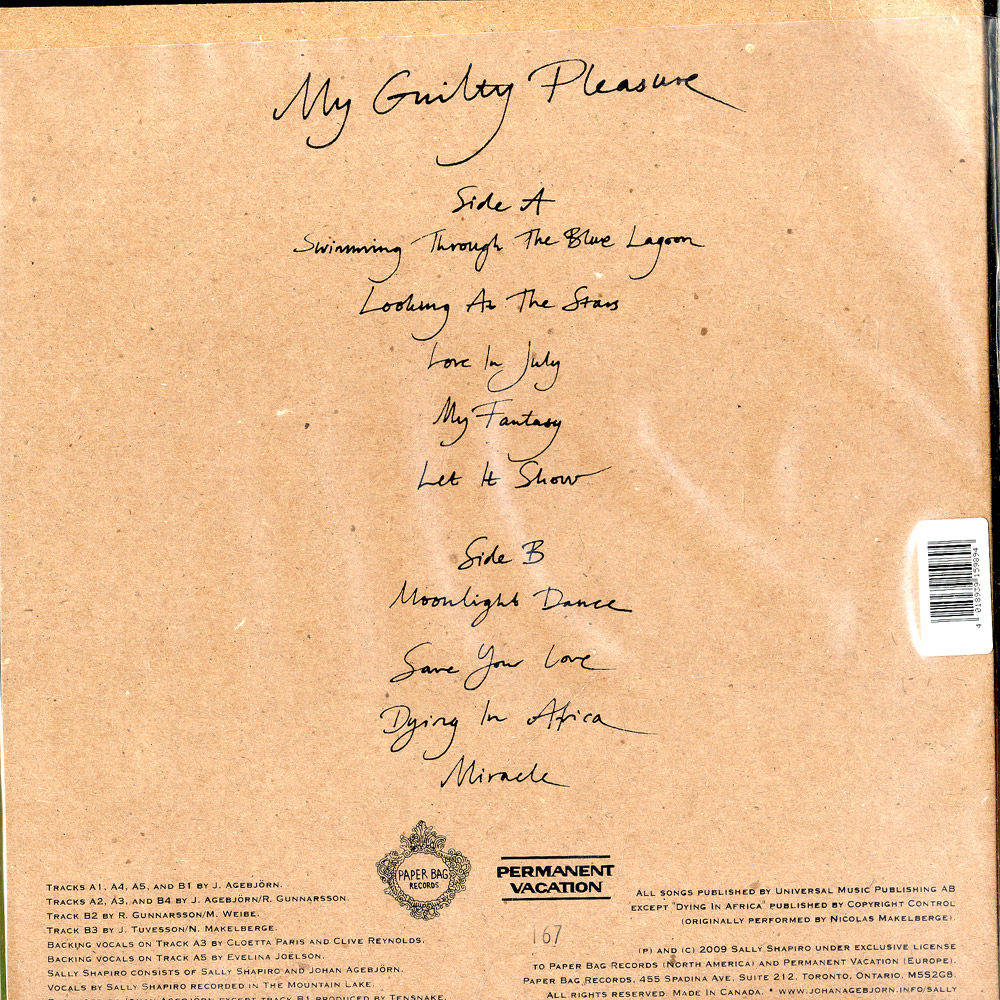 My Guilty Pleasure
Side A
Swimming Through The Blue Lagoon
Looking At The Stars
Love In July
My Fantasy
Let It Show
Side B
Moonlight Dance
Save Your Love
Dying In Africa
Miracle
PAPER BAG
RECORDS
PERMANENT
VACATION
167
TRACKS A1, A4, A5, AND B1 BY J. AGEBJÖRN.
TRACKS A2, A3, AND B4 BY J. AGEBJÖRN/R. GUNNARSSON.
TRACK B2 BY R. GUNNARSSON/M. WEIBE.
TRACK B3 BY J. TUVESSON/N. MAKELBERGE.
BACKING VOCALS ON TRACK A3 BY CLOETTA PARIS AND CLIVE REYNOLDS.
BACKING VOCALS ON TRACK A5 BY EVELINA JOELSON.
SALLY SHAPIRO CONSISTS OF SALLY SHAPIRO AND JOHAN AGEBJÖRN.
VOCALS BY SALLY SHAPIRO RECORDED IN THE MOUNTAIN LAKE.
JOHAN AGEBJÖRN EXCEPT TRACK B1 PRODUCED BY TENSNAKE.
ALL SONGS PUBLISHED BY UNIVERSAL MUSIC PUBLISHING AB
EXCEPT "DYING IN AFRICA" PUBLISHED BY COPYRIGHT CONTROL
(ORIGINALLY PERFORMED BY NICOLAS MAKELBERGE).
(P) AND (C) 2009 SALLY SHAPIRO UNDER EXCLUSIVE LICENSE
TO PAPER BAG RECORDS (NORTH AMERICA) AND PERMANENT VACATION (EUROPE).
PAPER BAG RECORDS, 455 SPADINA AVE, SUITE 212, TORONTO, ONTARIO, M5S2G8.
ALL RIGHTS RESERVED. MADE IN CANADA. * WWW.JOHANAGEBJORN.INFO/SALLY
4 018939 159894